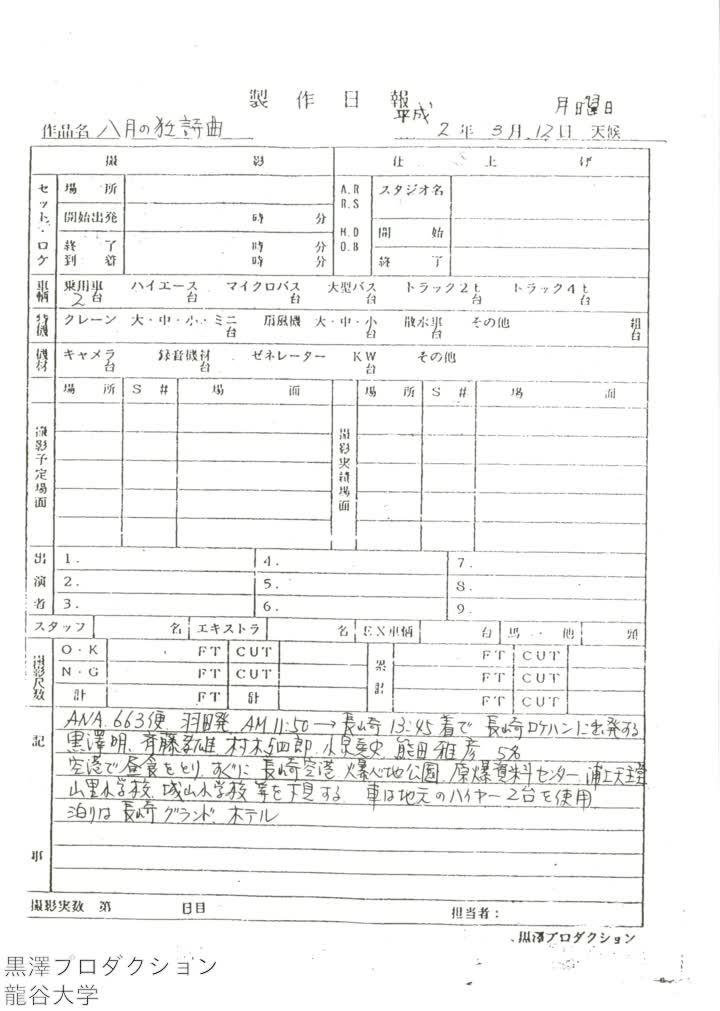 製作日報
作品名 八月の狂詩曲
平成 2年 3月 12日 月曜日 天候
撮影 仕上げ
セット・ロケ
場所
開始出発 時 分
終了 時 分
到着 時 分
A.R
R.S
H.D
O.B
スタジオ名
開始
終了
車輌 乗用車 2台 ハイエース 台 マイクロバス 台 大型バス 台 トラック2t 台 トラック4t 台
特機 クレーン 大・中・小・ミニ 台 扇風機 大・中・小 台 散水車 台 その他 組台
機材 キャメラ 台 録音機材 台 ゼネレーター KW 台 その他
撮影予定場面 場所 S# 場面
撮影実績場面 場所 S# 場面
出演者
1. 4. 7.
2. 5. 8.
3. 6. 9.
スタッフ 名 エキストラ 名 EX車輌 台 馬・他 頭
撮影尺数
O・K FT CUT 累計 FT CUT
N・G FT CUT FT CUT
計 FT 計 FT CUT
記事
ANA 663便 羽田発 AM11:50→長崎 13:45着で 長崎ロケハンに出発する
黒澤明、斉藤孝雄、村木与四郎、小泉堯史、熊田雅彦 5名
空港で昼食をとり、すぐに 長崎空港 爆心地公園、原爆資料センター、浦上天主堂
山里小学校、城山小学校 等を下見する 車は地元のハイヤー2台を使用
泊りは 長崎グランド、ホテル
撮影実数 第 日目
担当者:
黒澤プロダクション
黒澤プロダクション
龍谷大学